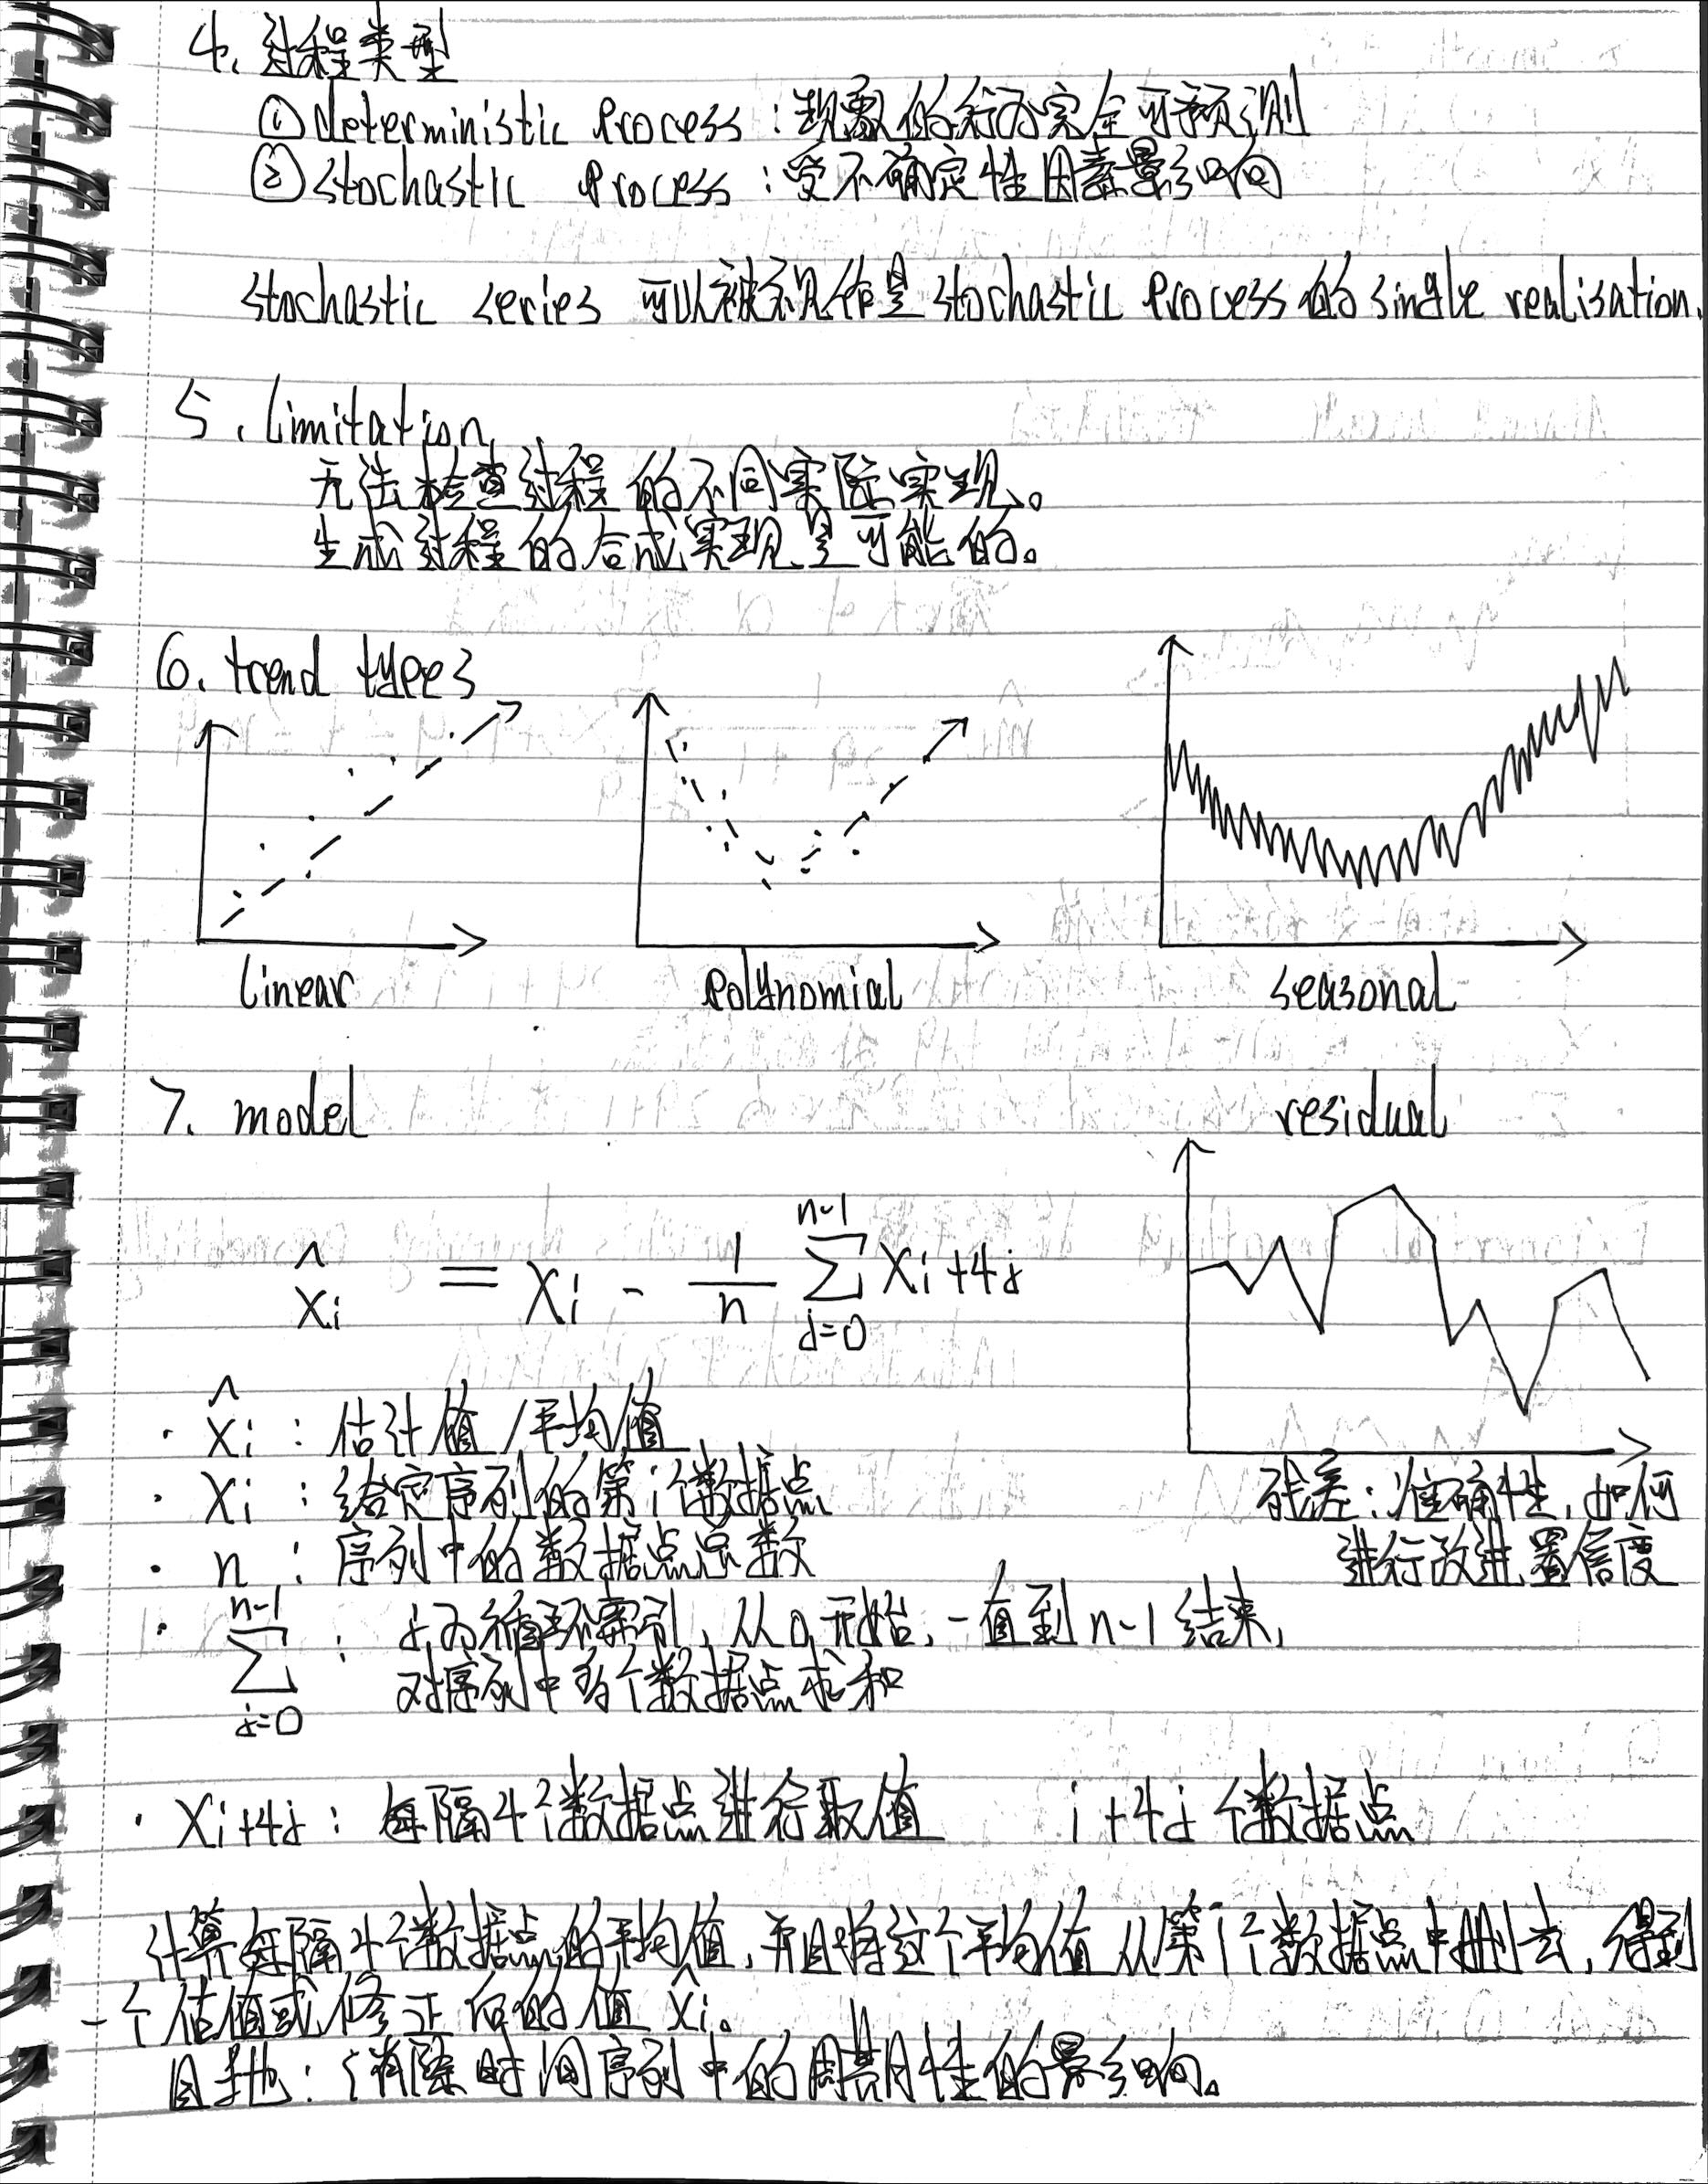 4. 过程类型
① deterministic process : 现象的行为完全可预测
② stochastic process : 受不确定性因素影响
stochastic series 可以被视作是 stochastic process 的 single realisation.
5. limitation
无法检查过程的不同实际实现。
生成过程的合成实现是可能的。
6. trend types
linear
polynomial
seasonal
7. model
residual
x̂i = xi - 1/n ∑(j=0, n-1) xi+4j
· x̂i : 估计值/平均值
· xi : 给定序列的第i个数据点
· n : 序列中的数据点总数
残差: 准确性, 如何
进行改进 置信度
· ∑(j=0, n-1) : j为循环索引, 从0开始, 一直到n-1结束,
对序列中多个数据点求和
· xi+4j : 每隔4个数据点进行取值 i+4j个数据点
计算每隔4个数据点的平均值, 并且将这个平均值从第i个数据点中删去, 得到
一个估值或修正后的值 x̂i。
目地: 消除时间序列中的周期性的影响。